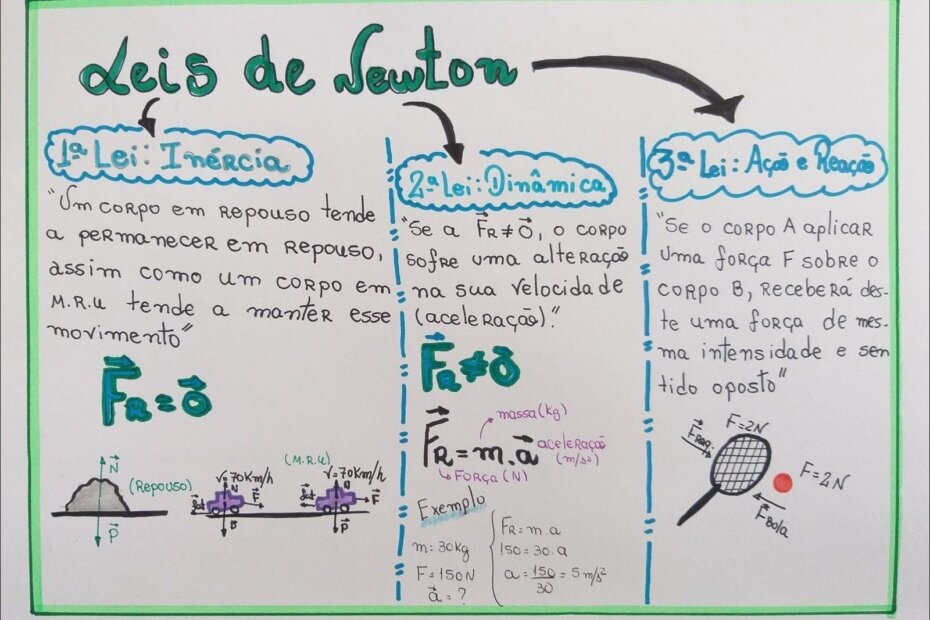 Leis de Newton
1ª Lei: Inércia
"Um corpo em repouso tende
a permanecer em repouso,
assim como um corpo em
M.R.U tende a manter esse
movimento"
F⃗R = 0⃗
N⃗
(Repouso)
P⃗
(M.R.U)
v=70Km/h
N
F⃗
P⃗
v=70Km/h
N
F⃗
P⃗
2ª Lei: Dinâmica
"Se a F⃗R ≠ 0⃗, o corpo
sofre uma alteração
na sua velocidade
(aceleração)."
F⃗R ≠ 0⃗
massa (kg)
F⃗R = m.a⃗
aceleração
(m/s²)
Força (N)
Exemplo
m=30kg
F=150N
a⃗=?
FR=m.a
150=30.a
a=150/30=5m/s²
3ª Lei: Ação e Reação
"Se o corpo A aplicar
uma força F sobre o
corpo B, receberá des-
te uma força de mes-
ma intensidade e sen
tido oposto"
F=2N
F⃗Raq.
F=2N
F⃗Bola